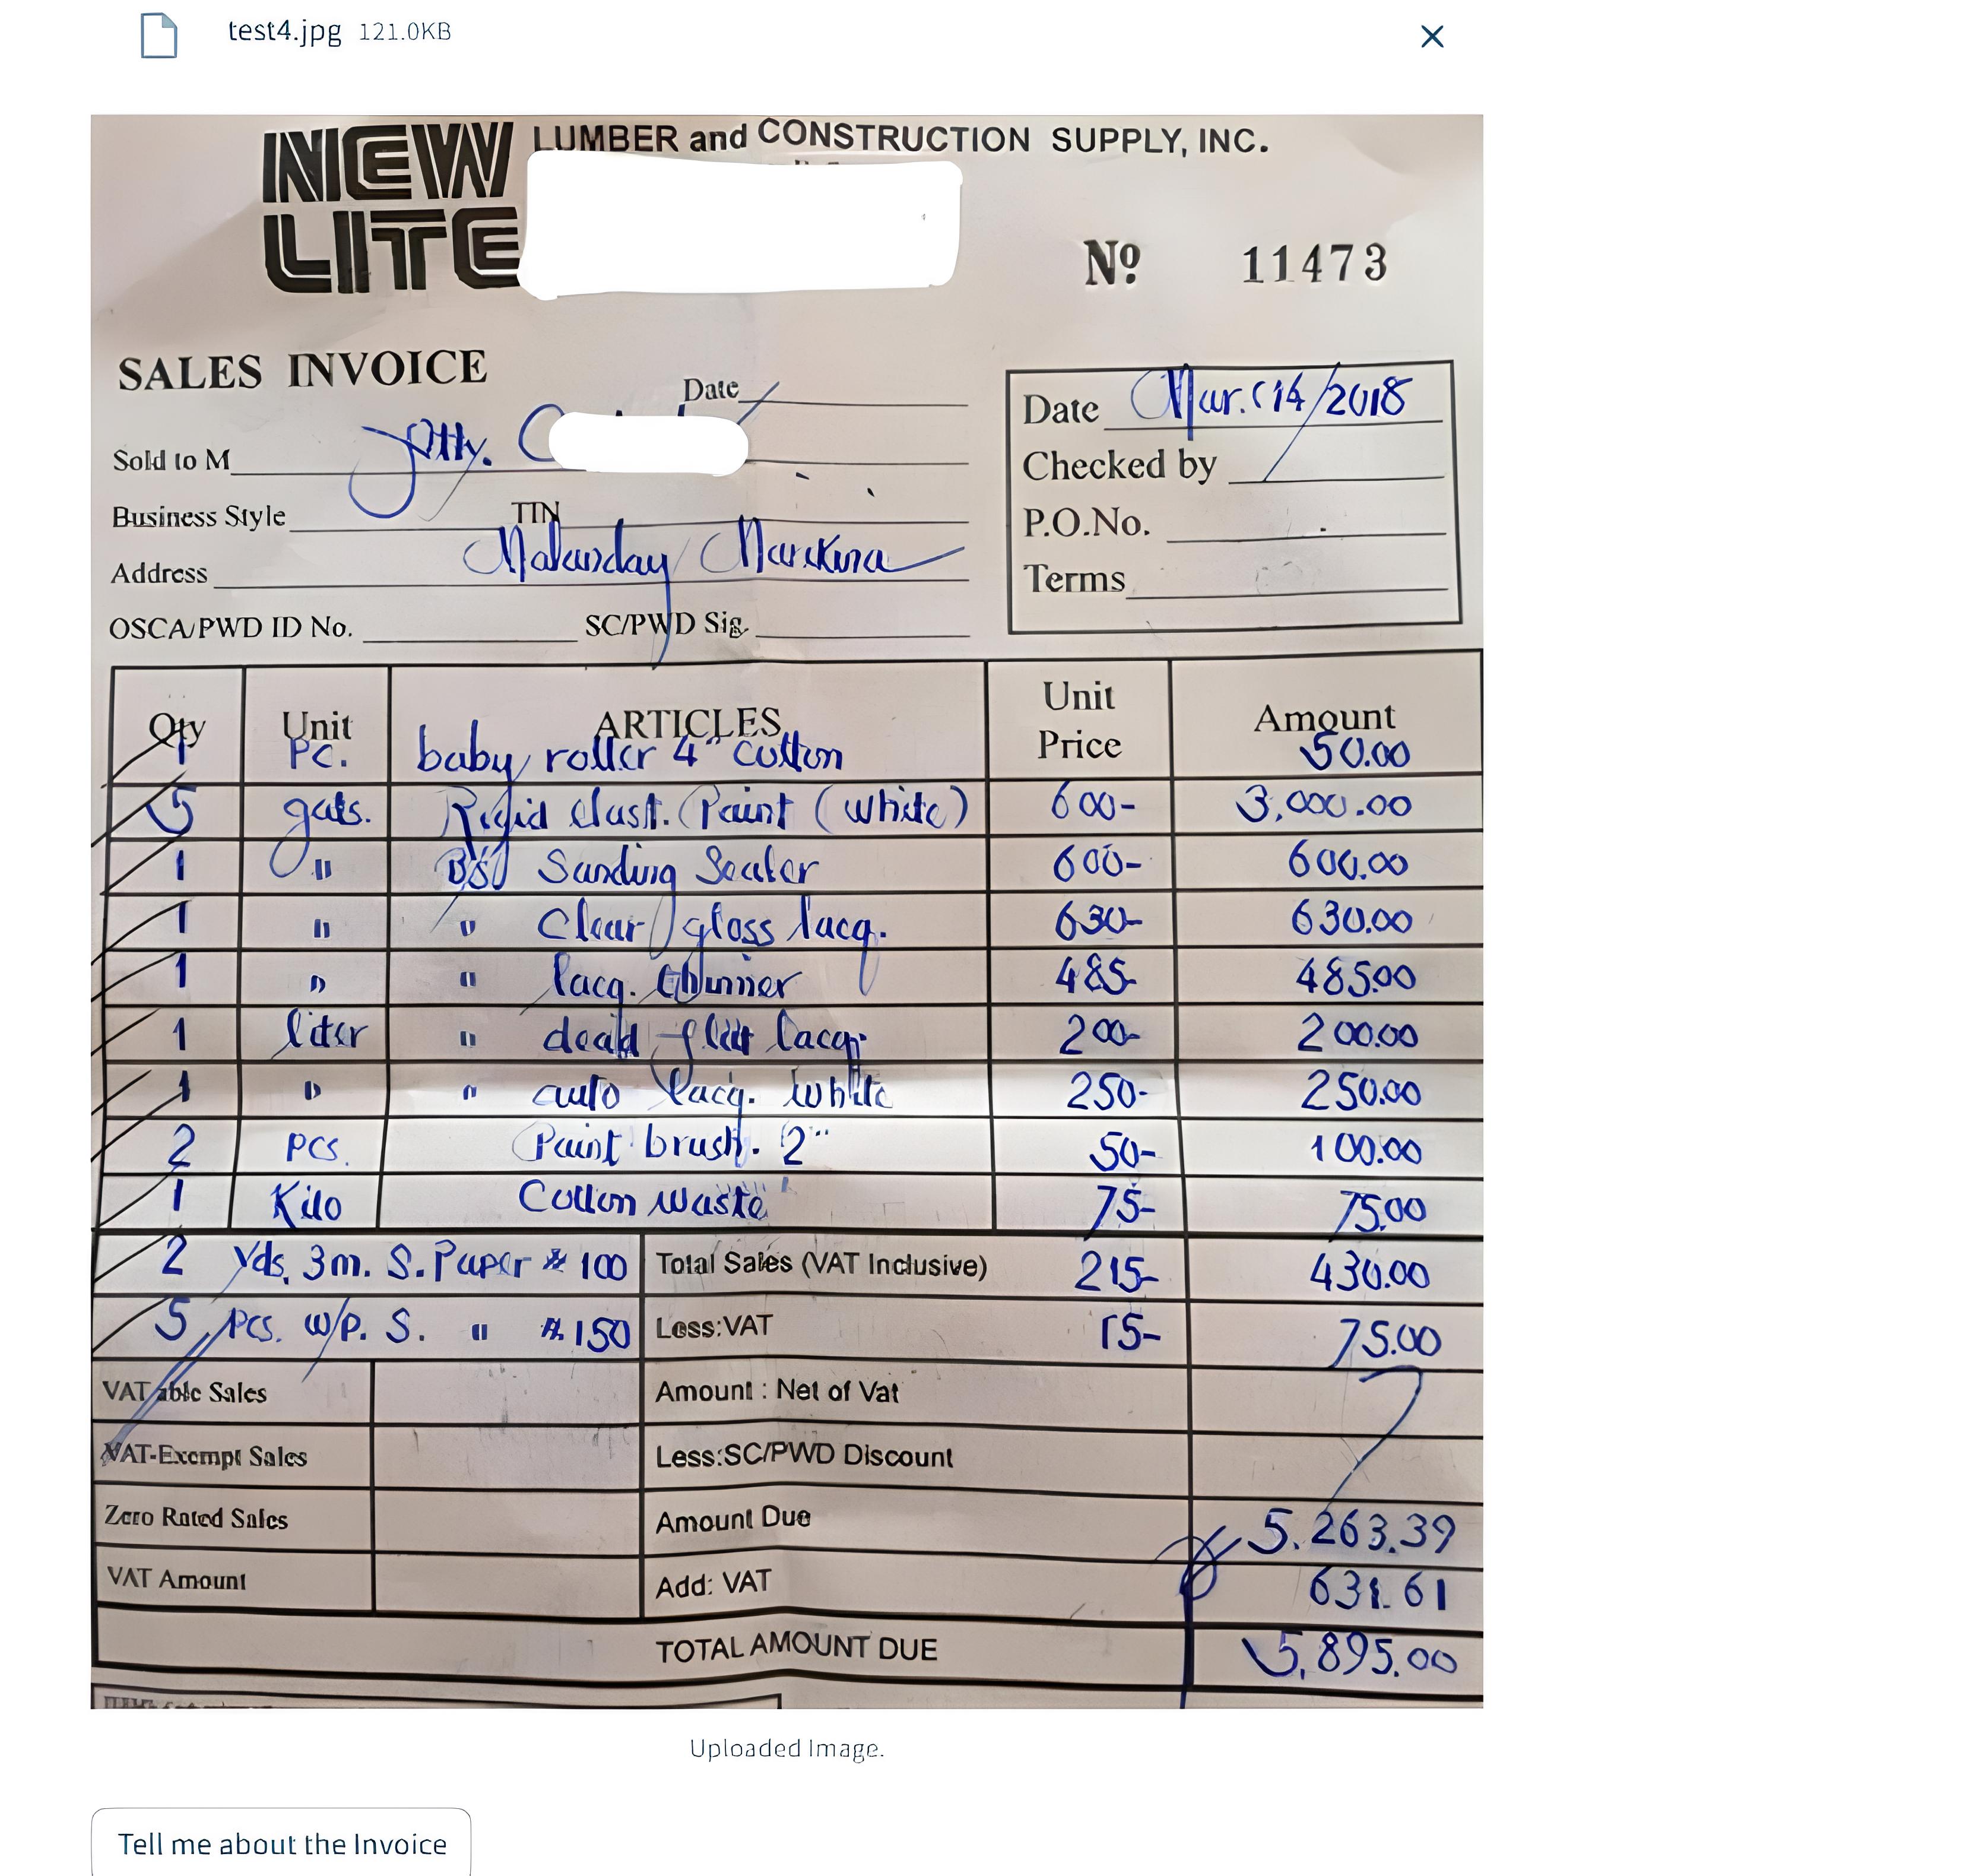 test4.jpg 121.0KB
NEW LITE LUMBER and CONSTRUCTION SUPPLY, INC.
Nº 11473
SALES INVOICE
Date
Date Mar. 14/2018
Sold to M Atty.
Checked by
Business Style TIN
P.O.No.
Address Malanday Marikina
Terms
OSCA/PWD ID No. SC/PWD Sig.
Qty Unit ARTICLES Unit Price Amount
1 Pc. baby roller 4" cotton 50.00
5 gals. Rigid Elast. Paint (White) 600- 3,000.00
1 " Sanding Sealer 600- 600.00
1 " " Clear gloss lacq. 630- 630.00
1 " " lacq. thinner 485- 485.00
1 liter " dead flat lacq. 200- 200.00
1 " " auto lacq. White 250- 250.00
2 pcs. Paint brush. 2" 50- 100.00
1 Kilo Cotton waste 75- 75.00
2 Yds. 3m. S. Paper # 100 Total Sales (VAT Inclusive) 215- 430.00
5 pcs. w/p. S. " #.150 Less:VAT 15- 75.00
VATable Sales Amount : Net of Vat
VAT-Exempt Sales Less:SC/PWD Discount
Zero Rated Sales Amount Due 5,263.39
VAT Amount Add: VAT 631.61
TOTAL AMOUNT DUE 5,895.00
Uploaded Image.
Tell me about the Invoice